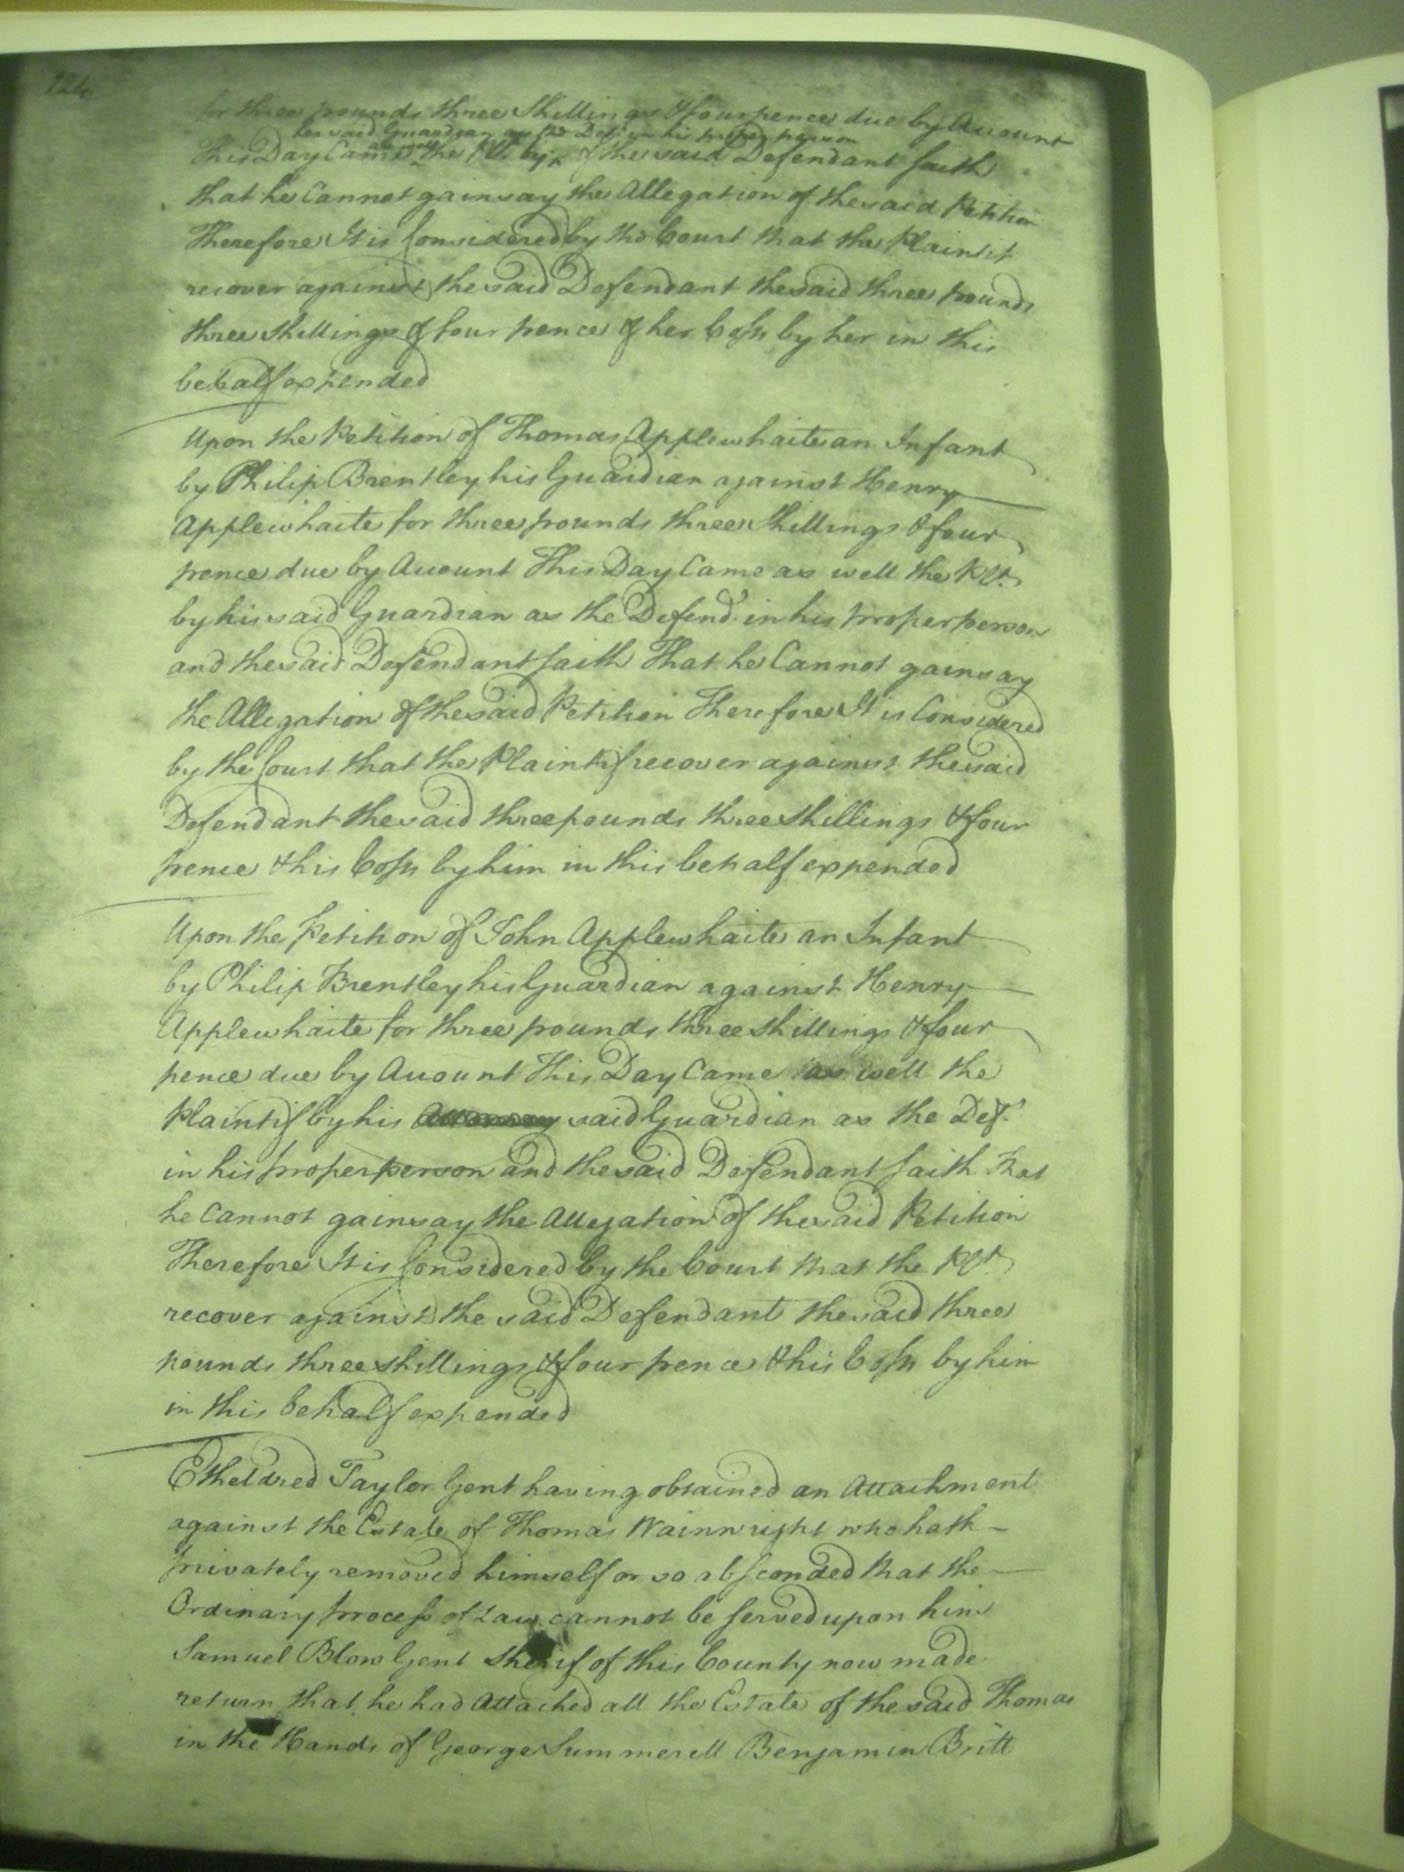 for three pounds three Shillings & four pence due by Account
her said Guardian as the Def.t in his proper person
This Day Came the Plt. by & the said Defendant saith
that he Cannot gainsay the Allegation of the said Petition
Therefore It is Considered by the Court that the Plaintif
recover against the said Defendant the said three pounds
three Shillings & four pence & her Costs by her in this
behalf expended
Upon the Petition of Thomas Applewhaite an Infant
by Philip Brentley his Guardian against Henry
Applewhaite for three pounds three Shillings & four
pence due by Account This Day Came as well the Plt.
by his said Guardian as the Defend.t in his proper person
and the said Defendant saith That he Cannot gainsay
the Allegation of the said Petition Therefore It is Considered
by the Court that the Plaintif recover against the said
Defendant the said three pounds three Shillings & four
pence & his Costs by him in this behalf expended
Upon the Petition of John Applewhaite an Infant
by Philip Brentley his Guardian against Henry
Applewhaite for three pounds three Shillings & four
pence due by Account This Day Came as well the
Plaintif by his Attorney said Guardian as the Def.t
in his proper person and the said Defendant saith that
he Cannot gainsay the Allegation of the said Petition
Therefore It is Considered by the Court that the Plt.
recover against the said Defendant the said three
pounds three Shillings & four pence & his Costs by him
in this behalf expended
Etheldred Taylor Gent having obtained an Attachment
against the Estate of Thomas Wainwright who hath
privately removed himself or so absconded that the
Ordinary process of Law cannot be served upon him
Samuel Blow Gent Sherif of this County now made
return that he had Attached all the Estate of the said Thomas
in the Hands of George Summerell Benjamin Britt